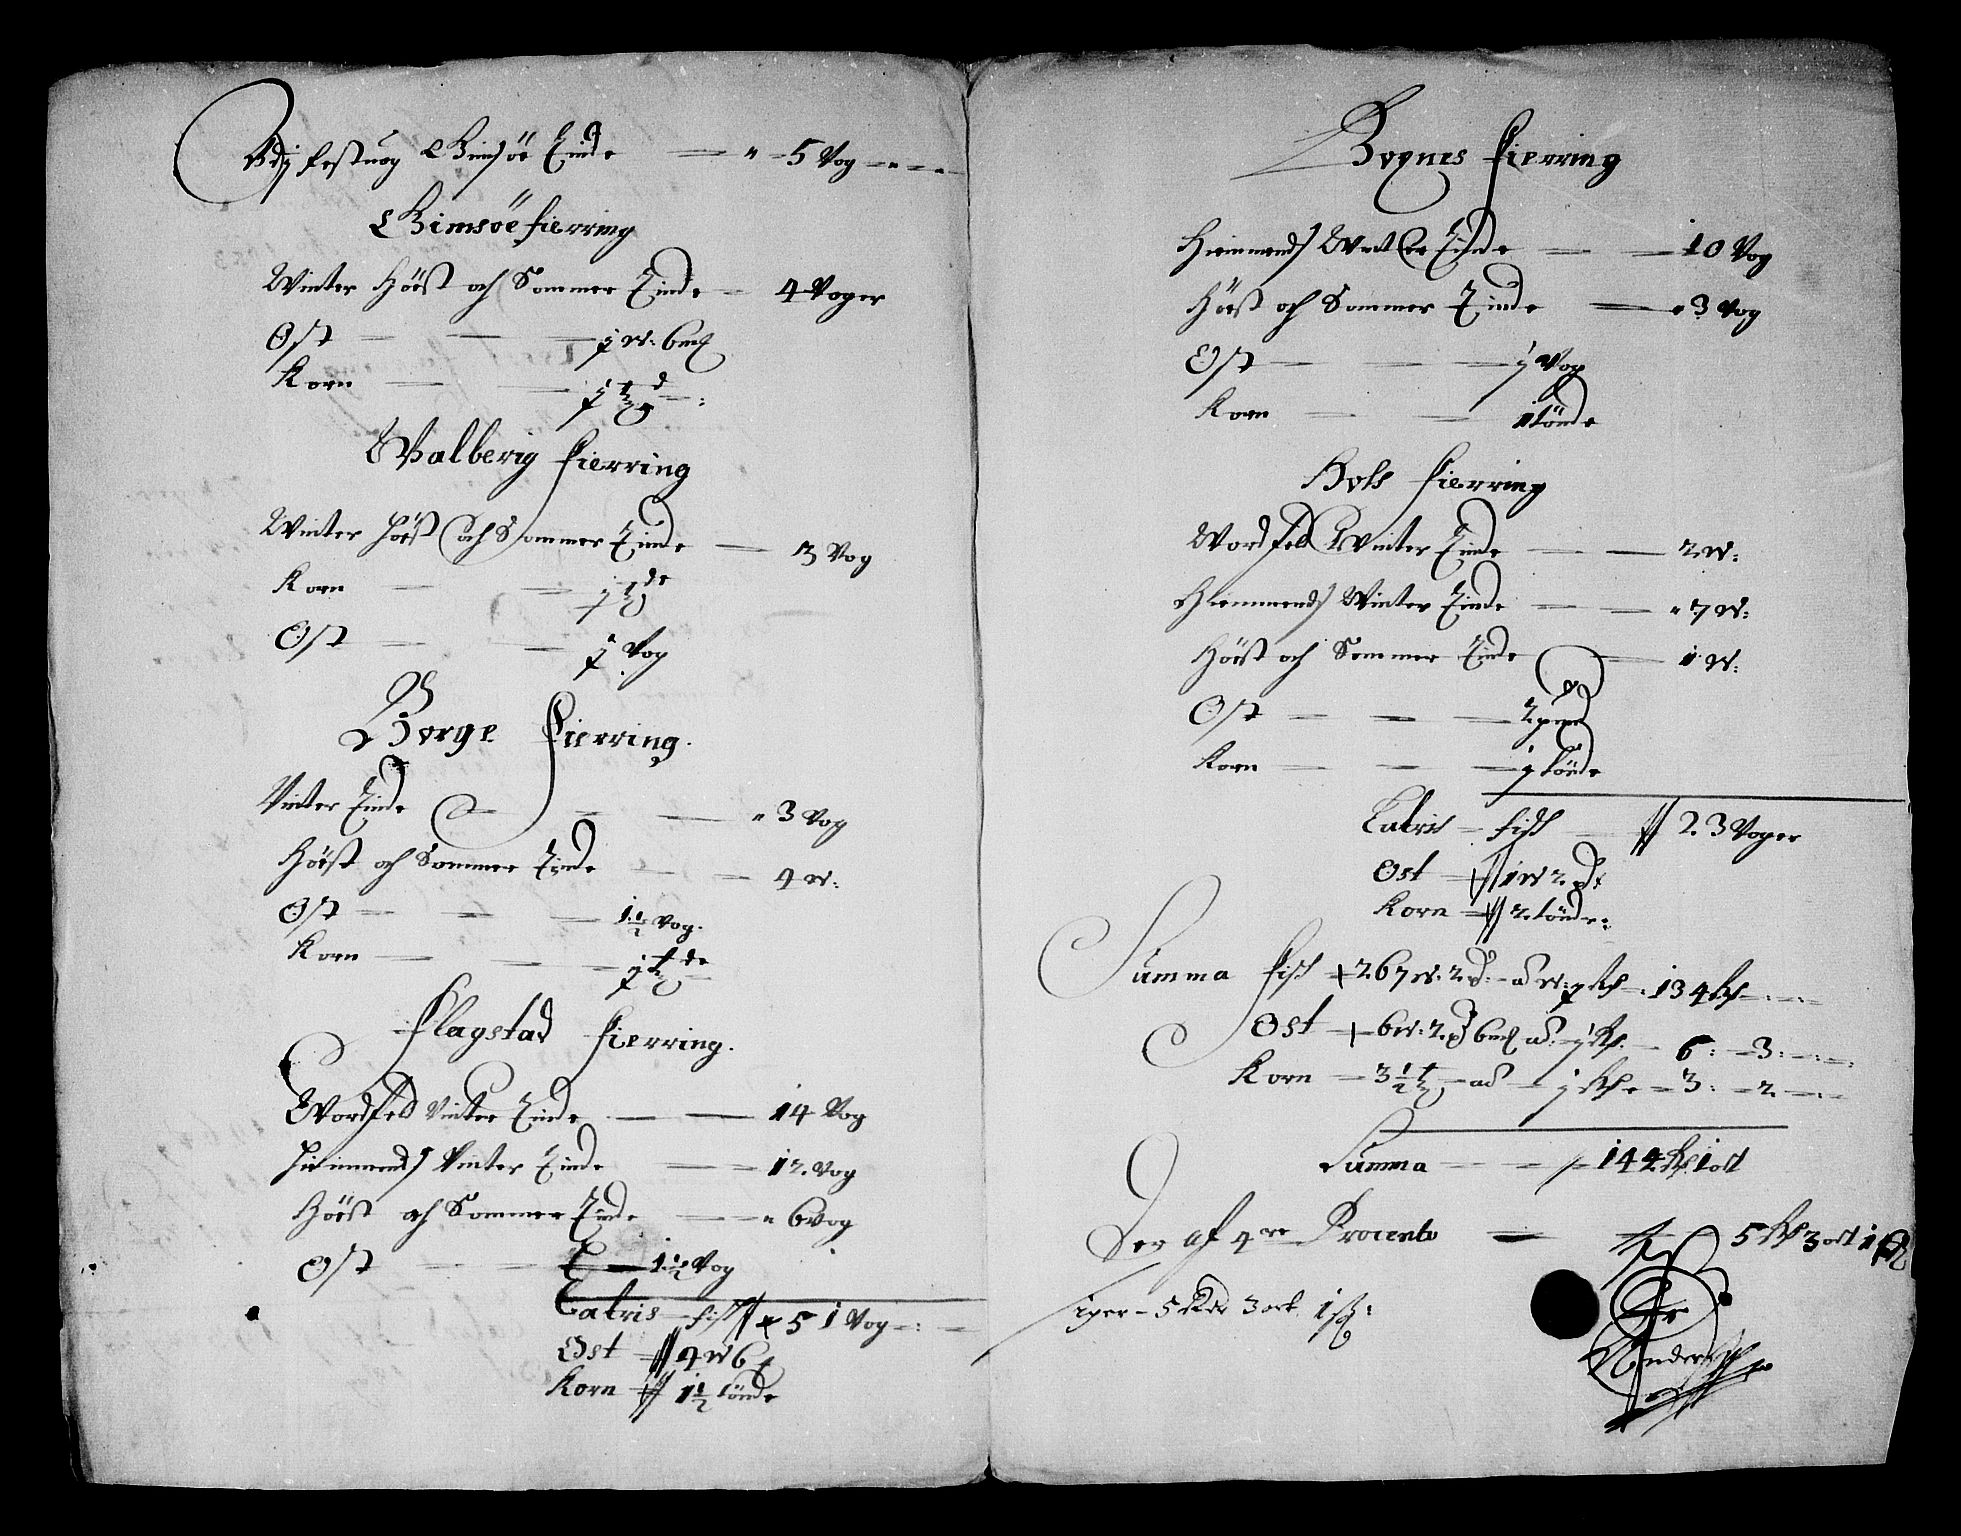 Udj festuog Gimsøe Tinde — " — 5 Vog — " — " —
Gimsøe fierring
Winter Høest och Sommer Tinde — 4 Voger
Ost — — — j w: 6 mk
Korn — — j td
Walberig fierring
Winter høest och Sommer Tinde — 3 Vog
Korn — — j tde
Ost — — j Vog
Borge fierring.
Vinter Tinde — — — " 3 Vog
Høest och Sommer Tinde — — 4 w:
Ost — — — 1½ vog.
Korn — — — tde
Flagstad fierring.
Wordfeld Vinter Tinde — — 14 Vog
Heimmends Vinter Tinde — — 12. vog
Høest och Sommer Tinde — — " 6 vog
Ost — — — 1½ Vog
Latris — fisk 51 Vog — : —
Ost 4 w 6
Korn 1½ tønde
Bognes fierring
Hiemmends Winter Tinde — — 10 Vog
Høest och Sommer Tinde — " 3 vog
Ost — — — j Vog
Korn — — 1 tønde
Hols fierring
Wordfeld Winter Tinde — — 2 w:
Hiemmends Winter Tinde — — " 7 w:
Høest och Sommer Tinde — 1 w:
Ost — — — 2 pund
Korn — — — j tønde
Latris — fisk — 23 Voger
Ost — 1 w 2 pd
Korn — 2 tønde:
Summa fisk — 267 w. 2 pd: — ad w: — 134
Ost — 6 w: 2 pd 6 mk ad: — 6: — 3: — : —
Korn — 3½ td — ad — j — 3: — 2. — : —
Summa — — 144 1 ort
Der af 4re Procento — — 5 3 ort 1
iger — 5 Rdr 3 ort 1 sk:
Anders